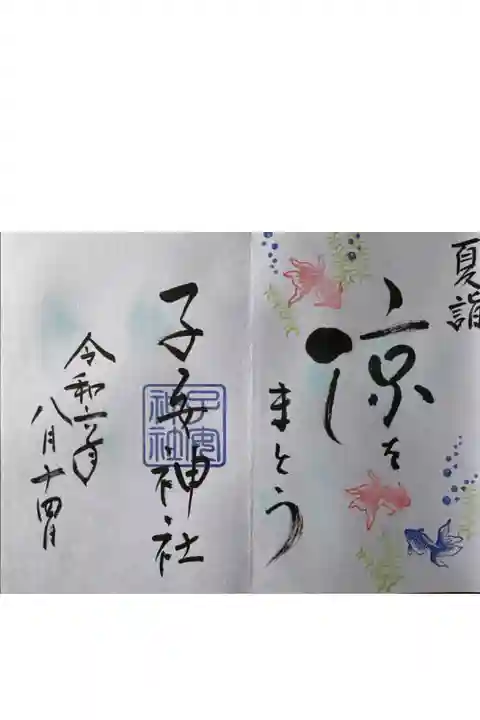 夏詣
涼を
まとう
子安神社
子安
神社
令和六年
八月十四日